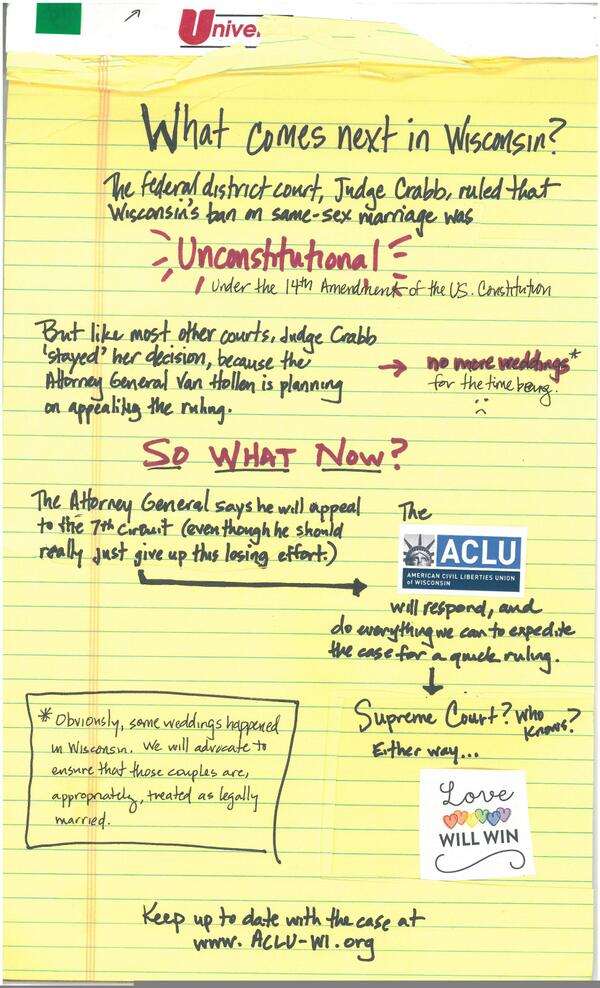 Unive
What comes next in Wisconsin?
The federal district court, Judge Crabb, ruled that
Wisconsin's ban on same-sex marriage was
Unconstitutional
Under the 14th Amendment of the US. Constitution
But like most other courts, Judge Crabb
'stayed' her decision, because the
Attorney General Van Hollen is planning
on appealing the ruling.
→ no more weddings*
for the time being.
:(
So What Now?
The Attorney General says he will appeal
to the 7th Circuit (even though he should
really just give up this losing effort.)
The
ACLU
AMERICAN CIVIL LIBERTIES UNION
of WISCONSIN
will respond, and
do everything we can to expedite
the case for a quick ruling.
Supreme Court? Who
knows?
Either way...
Love
WILL WIN
* Obviously, some weddings happened
in Wisconsin. We will advocate to
ensure that those couples are,
appropriately, treated as legally
married.
Keep up to date with the case at
www.ACLU-WI.org